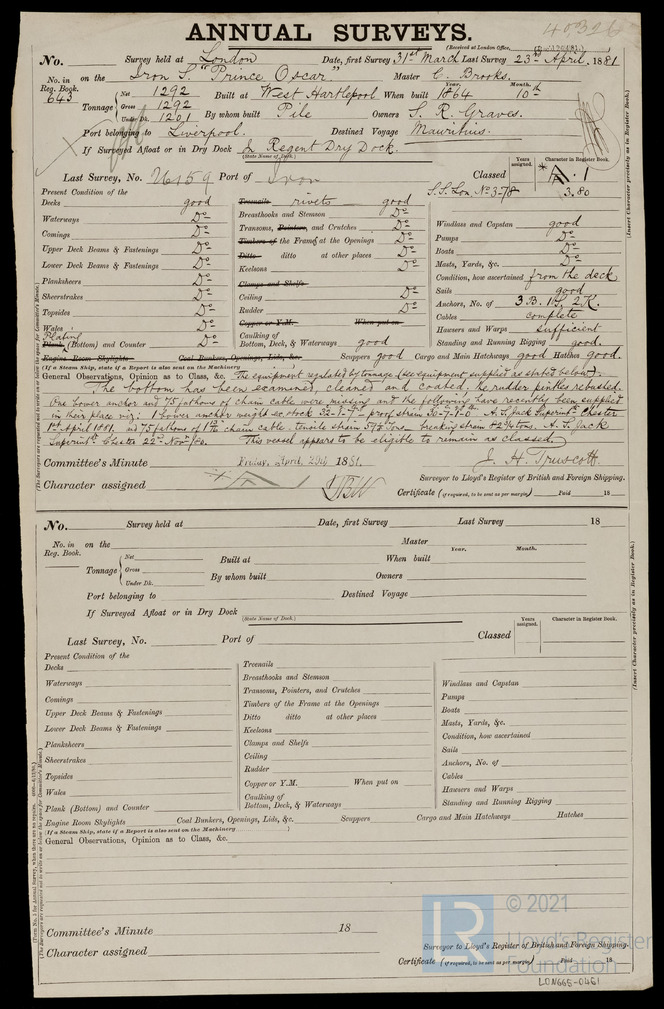 40326
ANNUAL SURVEYS.
(Received at London Office,
No. Survey held at London Date, first Survey 31st March Last Survey 23rd April, 1881
No. in Reg. Book. 643 on the Iron S. "Prince Oscar" Master C. Brooks.
Tonnage Net 1292 Gross 1292 Under Dk. 1201 Built at West Hartlepool When built Year. 1864 Month. 10th
By whom built Pile Owners S. R. Graves.
Port belonging to Liverpool. Destined Voyage Mauritius.
If Surveyed Afloat or in Dry Dock In Regent Dry Dock.
(State Name of Dock.)
Last Survey, No. 26159 Port of Iron Classed Years assigned. Character in Register Book.
S.S. Lon. No. 3-78 A. 1 3.80
Present Condition of the
Decks good
Waterways Do
Comings Do
Upper Deck Beams & Fastenings Do
Lower Deck Beams & Fastenings Do
Planksheers Do
Sheerstrakes Do
Topsides Do
Wales Do
Plating Plank (Bottom) and Counter Do
Treenails rivets good
Breasthooks and Stemson Do
Transoms, Pointers, and Crutches Do
Timbers of the Frame at the Openings Do
Ditto ditto at other places Do
Keelsons Do
Clamps and Shelfs
Ceiling Do
Rudder Do
Copper or Y.M. When put on
Caulking of Bottom, Deck, & Waterways good
Windlass and Capstan good
Pumps Do
Boats Do
Masts, Yards, &c. Do
Condition, how ascertained from the deck
Sails good
Anchors, No. of 3 B. 1 S. 2 K.
Cables complete
Hawsers and Warps sufficient
Standing and Running Rigging good.
Engine Room Skylights Coal Bunkers, Openings, Lids, &c. Scuppers good Cargo and Main Hatchways good Hatches good.
(If a Steam Ship, state if a Report is also sent on the Machinery
General Observations, Opinion as to Class, &c. The equipment regulated by tonnage (see equipment supplied as stated below).
The bottom has been examined, cleaned and coated, the rudder pintles rebushed.
One bower anchor and 75 fathoms of chain cable were missing and the following have recently been supplied
in their place viz: 1 bower anchor weight ex. stock proof strain A. S. Jack Superint. Chester
1st April 1881. and 75 fathoms of chain cable. tensile strain tons breaking strain tons, A. S. Jack
Superint. Chester 22nd Nov/80. This vessel appears to be eligible to remain as classed.
J. H. Truscott.
Committee's Minute Friday, April, 29th 1881.
Surveyor to Lloyd's Register of British and Foreign Shipping.
Character assigned
Certificate (if required, to be sent as per margin) Paid 18
(Insert Character precisely as in Register Book.)
No. Survey held at Date, first Survey Last Survey 18
No. in Reg. Book. on the Master
Tonnage Net Gross Under Dk. Built at When built Year. Month.
By whom built Owners
Port belonging to Destined Voyage
If Surveyed Afloat or in Dry Dock
(State Name of Dock.)
Last Survey, No. Port of Classed Years assigned. Character in Register Book.
Present Condition of the
Decks
Waterways
Comings
Upper Deck Beams & Fastenings
Lower Deck Beams & Fastenings
Planksheers
Sheerstrakes
Topsides
Wales
Plank (Bottom) and Counter
Treenails
Breasthooks and Stemson
Transoms, Pointers, and Crutches
Timbers of the Frame at the Openings
Ditto ditto at other places
Keelsons
Clamps and Shelfs
Ceiling
Rudder
Copper or Y.M. When put on
Caulking of Bottom, Deck, & Waterways
Windlass and Capstan
Pumps
Boats
Masts, Yards, &c.
Condition, how ascertained
Sails
Anchors, No. of
Cables
Hawsers and Warps
Standing and Running Rigging
Engine Room Skylights Coal Bunkers, Openings, Lids, &c. Scuppers Cargo and Main Hatchways Hatches
(If a Steam Ship, state if a Report is also sent on the Machinery )
General Observations, Opinion as to Class, &c.
Committee's Minute 18
Character assigned
Surveyor to Lloyd's Register of British and Foreign Shipping.
Certificate (if required, to be sent as per margin) Paid 18
(Insert Character precisely as in Register Book.)
LR © 2021
Lloyd's Register
Foundation
LON665-0461